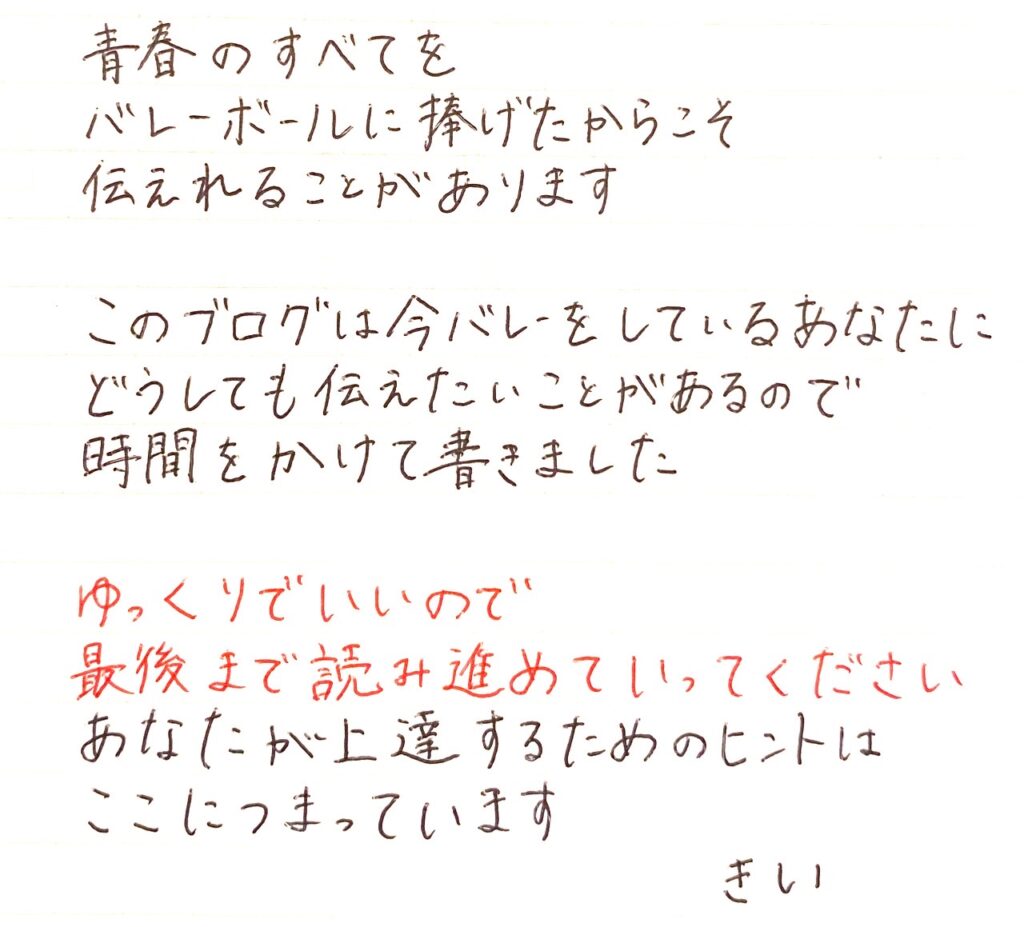 青春のすべてを
バレーボールに捧げたからこそ
伝えれることがあります
このブログは今バレーをしているあなたに
どうしても伝えたいことがあるので
時間をかけて書きました
ゆっくりでいいので
最後まで読み進めていってください
あなたが上達するためのヒントは
ここにつまっています
きい